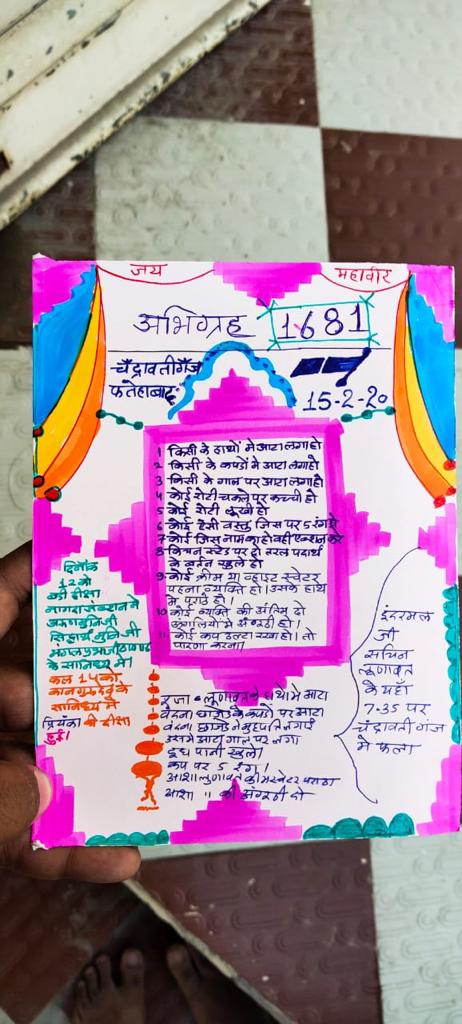 जय
महावीर
अभिग्रह
1681
चँद्रावतीगँज
फतेहाबाद
15-2-20
1 किसी के हाथों में आटा लगा हो
2 किसी के कपडों में आटा लगा हो
3 किसी के गाल पर आटा लगा हो
4 कोई रोटी चकले पर कच्ची हो
5 कोई रोटी लूखी हो
6 कोई ऐसी वस्तु जिस पर 5 रंग हो
7 कोई जिस नाम का हो वही एक्शन करे
8 किचन स्टेंड पर दो तरल पदार्थ
के बर्तन खुले हो
9 कोई क्रीम या व्हाइट स्वेटर
पहना व्यक्ति हो। उसके हाथ
में पराठे हो।
10 कोई व्यक्ति की अंतिम दो
ऊंगलियों में अँगूठी हो।
11 कोई कप उल्टा रखा हो। तो
पारणा करना।
दिनाँक
12 को
की दीक्षा
सिद्धार्थ मुनि जी
के सानिध्य में।
कल 14 को
सानिध्य में
प्रियंका की दीक्षा
हुई।
पूजा लूणावत के हाथों में आटा
वंदना छाजेड के कपडों पर आटा
वंदना छाजेड ने
गाल पर लगा
दूध पानी खुले।
कप पर 5 रंग।
आशा लूणावत क्रीम स्वेटर पराठा
आशा " की अँगूठी दो
इंदरमल
जी
सचिन
लूणावत
के यहाँ
7-35 पर
चंद्रावतीगंज
में फला